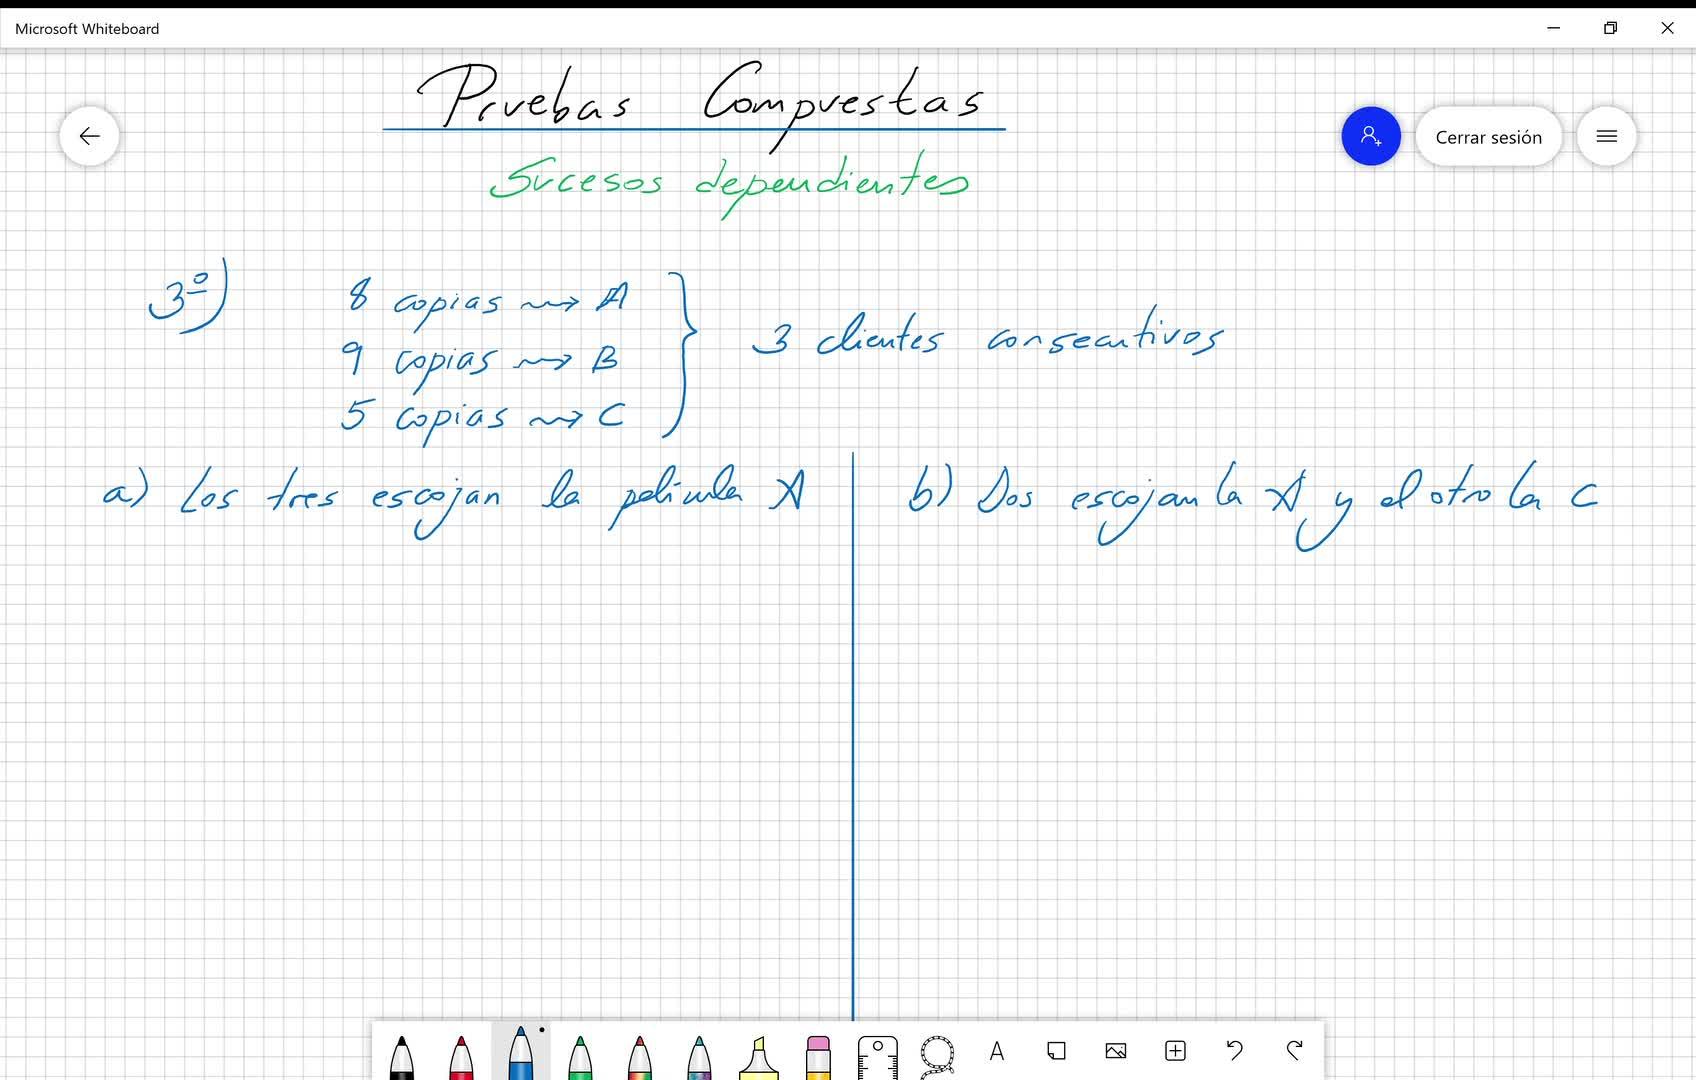 Microsoft Whiteboard
Pruebas Compuestas
Sucesos dependientes
Cerrar sesión
3º)
8 copias → A
9 copias → B
5 copias → C
3 clientes consecutivos
a) Los tres escojan la película A
b) Dos escojan la A y el otro la C
A